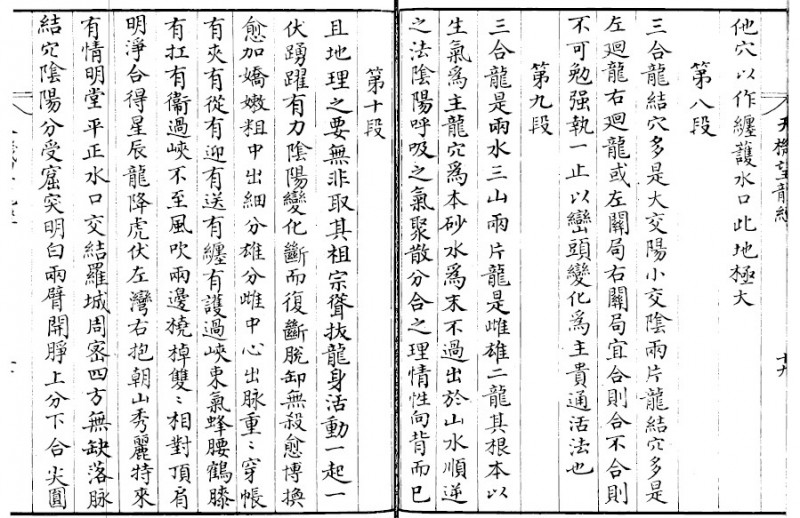 他穴以作纏護水口此地極大
第八段
三合龍結穴多是大交陽小交陰兩片龍結穴多是
左廻龍右廻龍或左關局右關局宜合則合不合則
不可勉强執一止以巒頭變化爲主貴通活法也
第九段
三合龍是兩水三山兩片龍是雌雄二龍其根本以
生氣爲主龍穴爲本砂水爲末不過出於山水順逆
之法陰陽呼吸之氣聚散分合之理情性向背而已
第十段
且地理之要無非取其祖宗聳拔龍身活動一起一
伏踴躍有力陰陽變化斷而復斷脫卸無殺愈博換
愈加嬌嫩粗中出細分雄分雌中心出脉重〻穿帳
有夾有從有迎有送有纏有護過峽束氣蜂腰鶴膝
有扛有衞過峽不至風吹兩邊橈棹雙〻相對頂肩
明淨台得星辰龍降虎伏左灣右抱朝山秀麗特來
有情明堂平正水口交結羅城周密四方無缺落脉
結穴陰陽分受窟突明白兩臂開睜上分下合尖圓